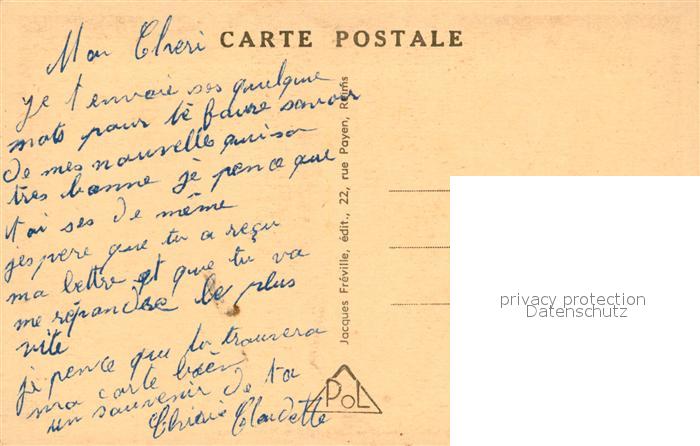 CARTE POSTALE
Mon Cheri
je t'envoie ses quelque
mots pour té faire savoir
de mes nouvelle qui sa
tres bonne je pence que
toi ses de même
j'espere que tu a reçu
ma lettre et que tu va
me répondre le plus
vite
je pence que tu trouvera
ma carte bien
un souvenir de ta
Cherie Claudette
Jacques Fréville, édit., 22, rue Payen, Reims
POL
privacy protection
Datenschutz